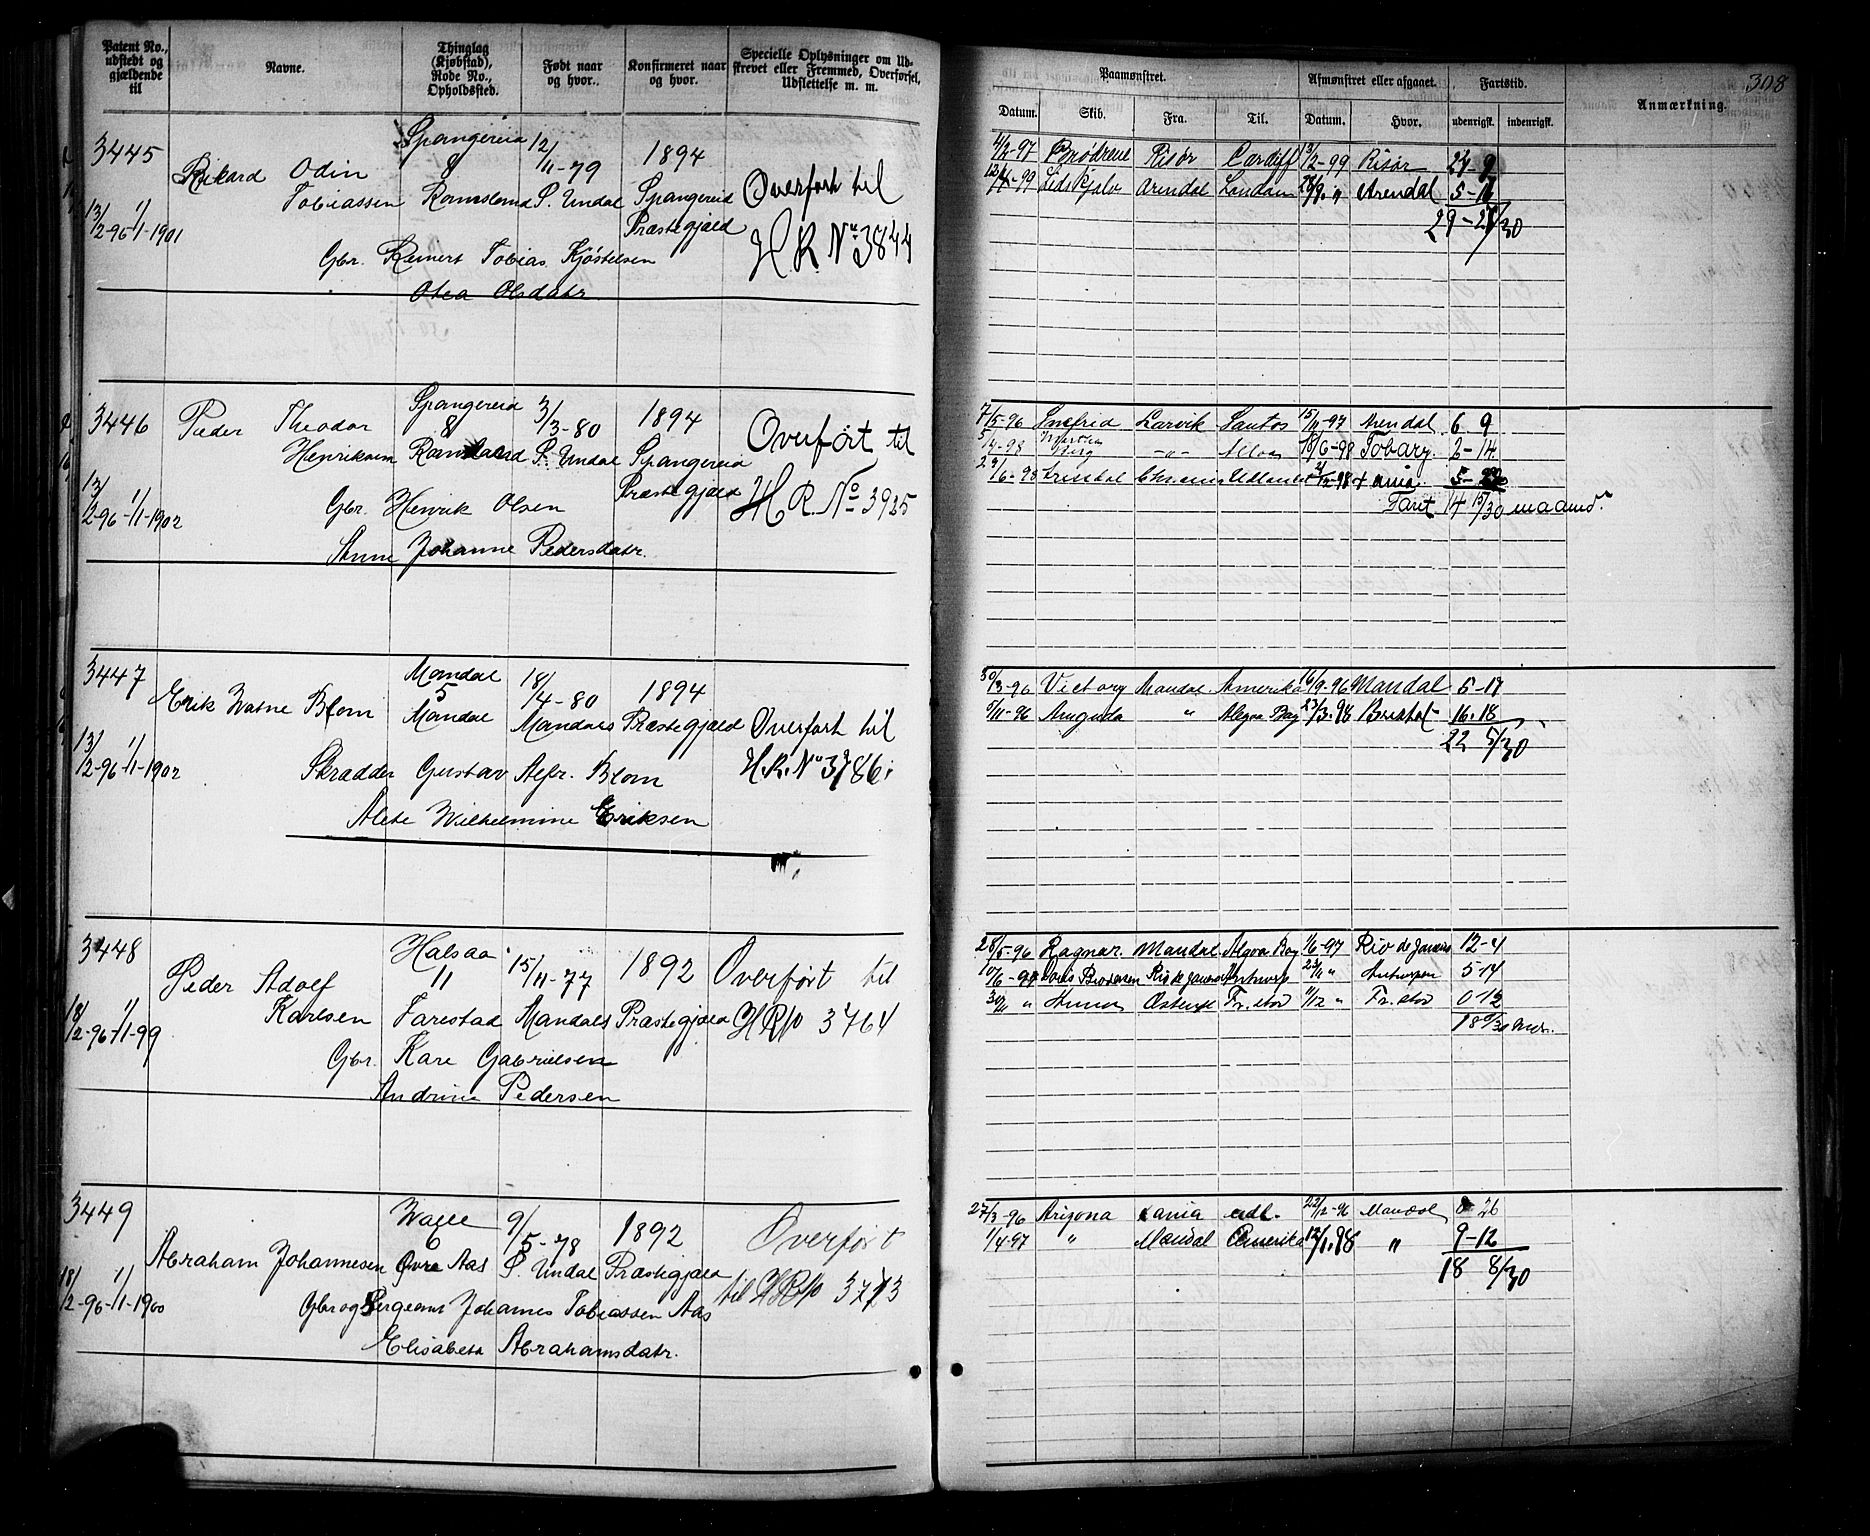 Patent No., udstedt og gjældende til
Navne.
Thinglag (Kjøbstad), Rode No., Opholdssted.
Født naar og hvor.
Konfirmeret naar og hvor.
Specielle Oplysninger om Udskrevet eller Fremmed, Overførsel, Udslettelse m. m.
Paamønstret.
Afmønstret eller afgaaet.
Fartstid.
Anmærkning.
308
Datum.
Skib.
Fra.
Til.
Datum.
Hvor.
udenrigsk.
indenrigsk.
3445
Rikard Odin
Tobiassen
Spangereid
8
12/11-79
S. Undal
1894
Spangereid
Præstegjæld
Overført til
H.R. No 3844
13/2-96 1/1-1901
Gbr. Reinert Tobias Kjøstelsen
Otea Olsdatr
4/2-97 Brødrene Risør Cardiff 13/2-99 Risør
Arendal London Arendal
3446
Peder Theodor
Henriksen
Spangereid
8
3/3-80
S. Undal
1894
Spangereid
Præstegjæld
Overført til
H R. No 3925
13/2-96 1/1-1902
Gbr. Henrik Olsen
Anne Johanne Pedersdatr.
7/5-96 Snefrid Larvik Santos Arendal 6 9
18/6-98 2-14
Faret 14 15/30 maaned.
3447
Erik Watne Blom
Mandal
5
Mandal
18/4-80
Mandals
1894
Præstegjæld
Overført til
H.R. No 3786.
13/2-96 1/1-1902
Skrædder Gustav Alfr. Blom
Alete Wilhelmine Eriksen
30/3-96 Victory Mandal Amerika 16/9-96 Mandal 5-17
5/11-96 " Algoa Bay 23/3.98 Bristol 16.18
22 5/30
3448
Peder Adolf
Karlsen
Halsaa
11
Farestad
15/11-77
Mandals
1892
Præstegjæld
Overført til
HR No 3764
18/2-96 1/1-99
Gbr. Karl Gabrielsen
Andrine Pedersen
28/5-96 Ragnar. Mandal Algoa Bay 1/6-97 Rio de Janeiro 12-4
Rio de Janeiro Antwerp Antwerpen 5 14
30/11 " Anna 11/12 " 0 12
18 0/30 Mdr.
3449
Abraham Johannesen
Valle
6
Øvre Aas
9/5-78
S. Undal
1892
Præstegjæld
Overført
til HR No 3773
18/2-96 1/1-1900
Gbr og Sergeant Johannes Tobiassen Aas
Elisabeth Abrahamsdatr.
27/3-96 Arizona udl. 22/12-96 Mandal 8 26
1/4-97 " Mandal Amerika " 9-12
18 8/30